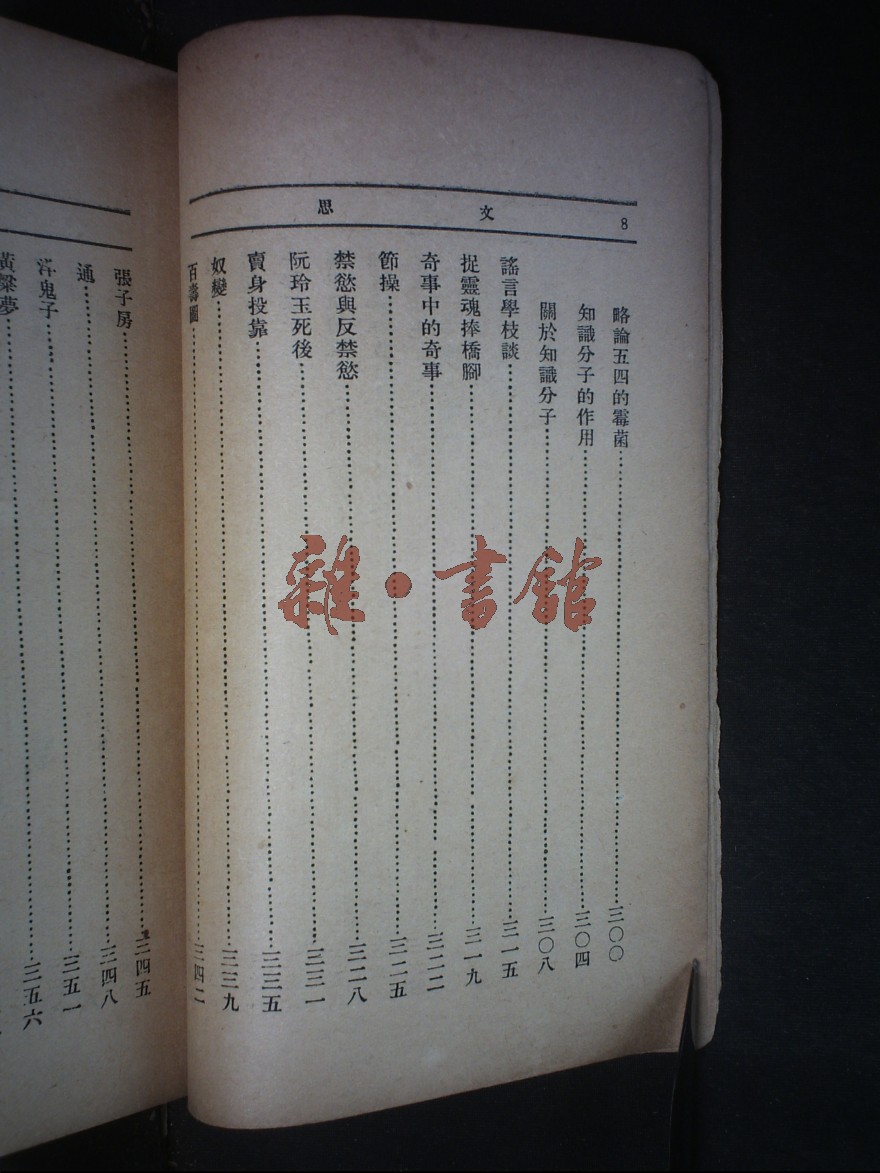 8 文思
略論五四的霉菌……三〇〇
知識分子的作用……三〇四
關於知識分子……三〇八
謠言學枝談……三一五
捉靈魂捧橋腳……三一九
奇事中的奇事……三二二
節操……三二五
禁慾與反禁慾……三二八
阮玲玉死後……三三一
賣身投靠……三三五
奴變……三三九
百壽圖……三四二
張子房……三四五
通……三四八
洋鬼子……三五一
黃粱夢……三五六
雜·書館